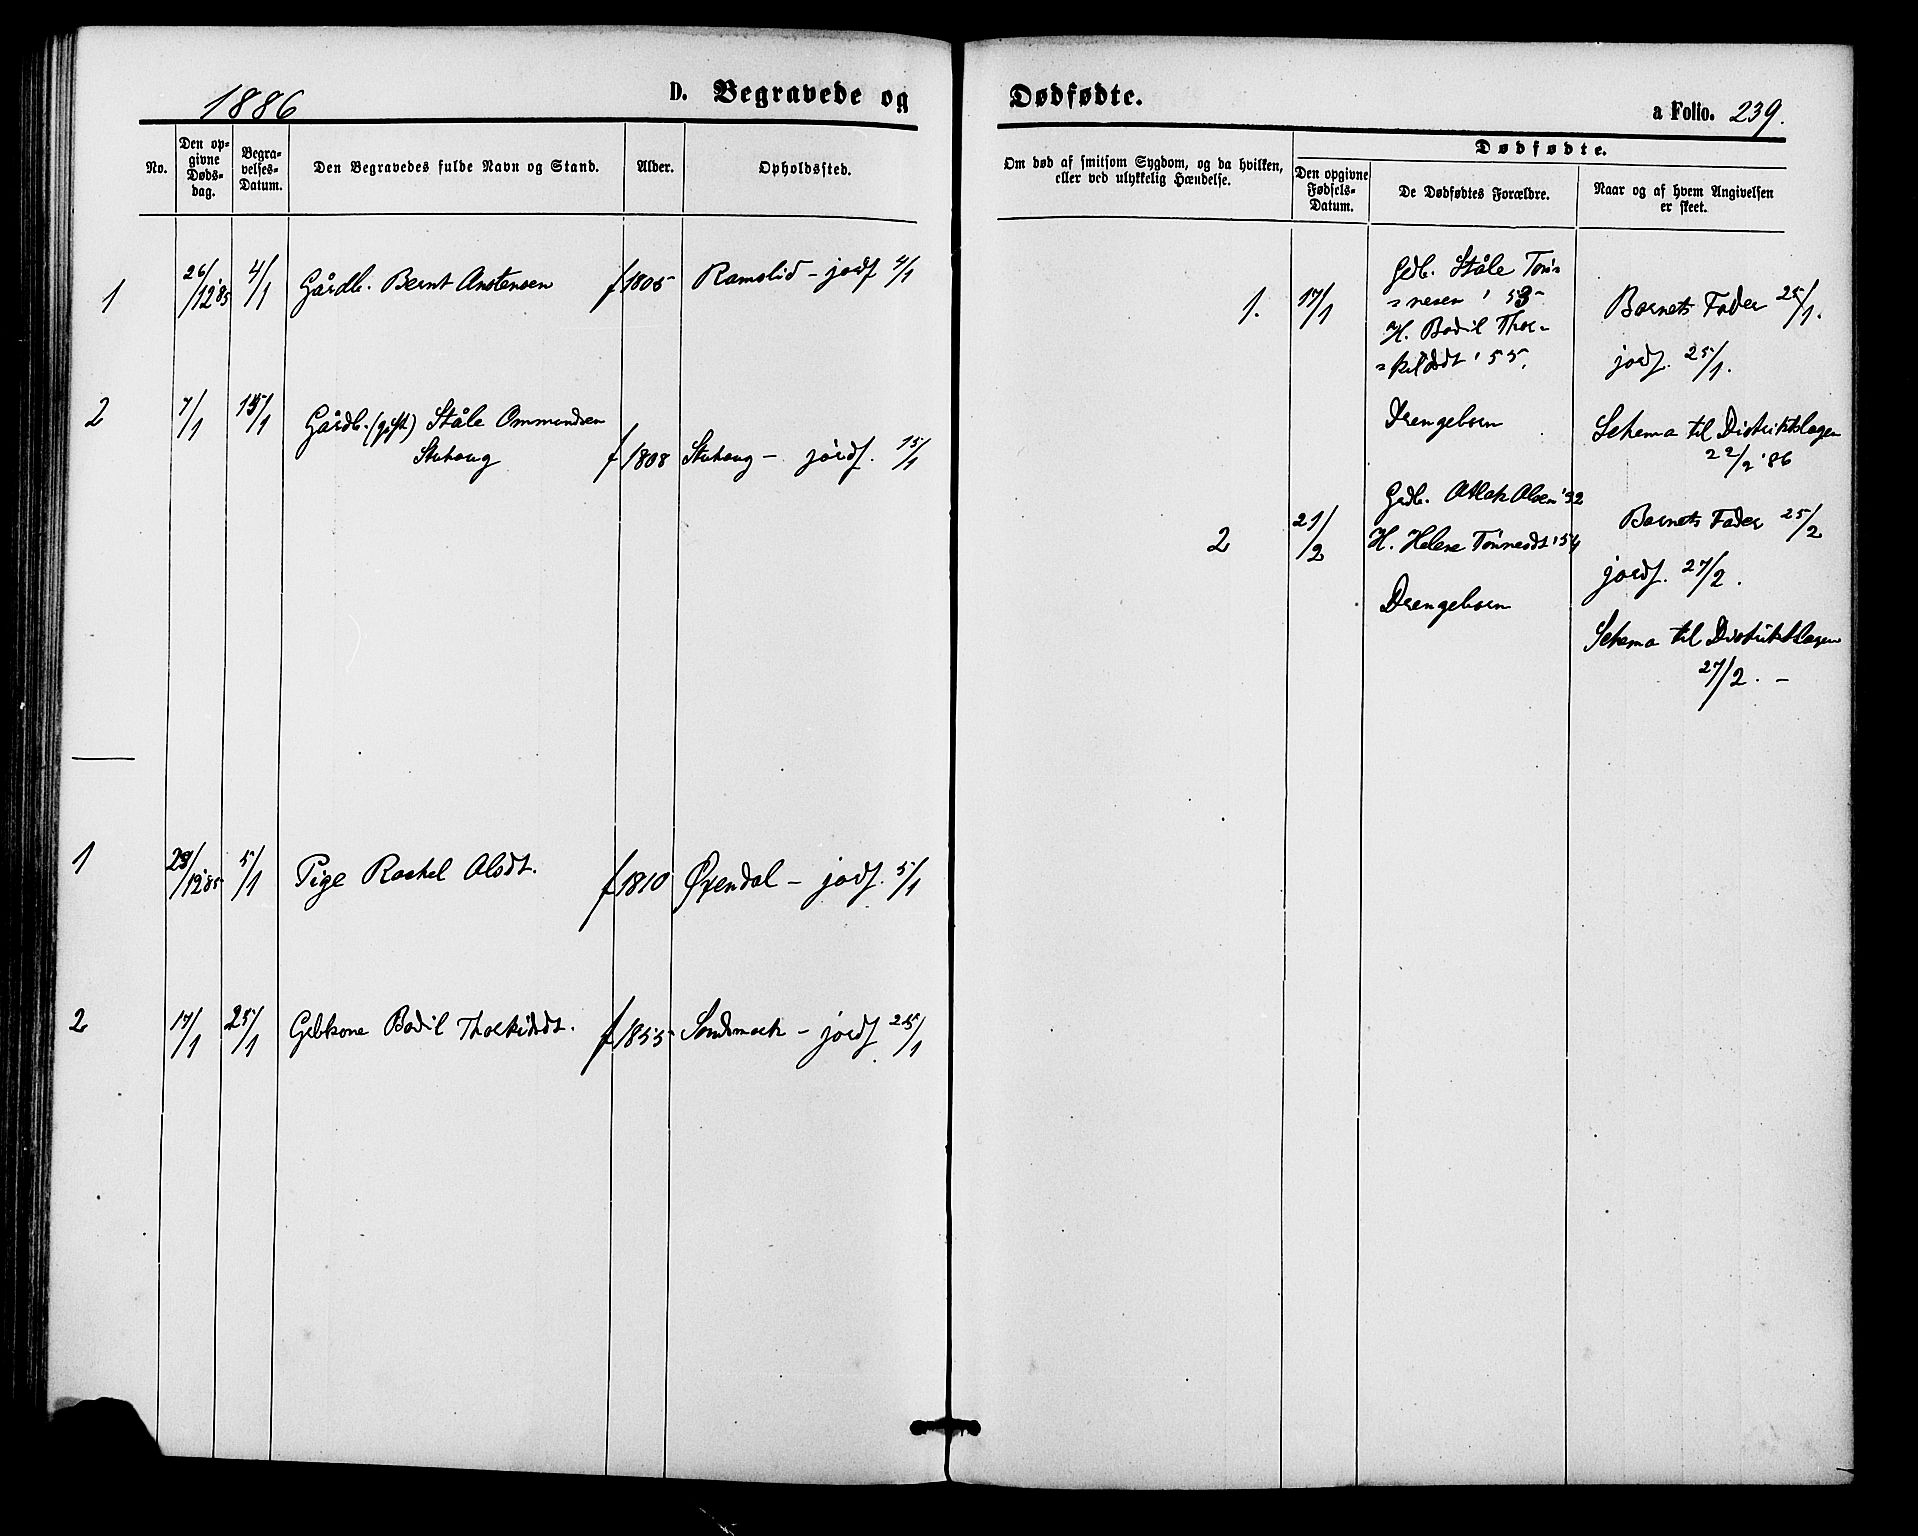 1886
D. Begravede og Dødfødte.
a Folio. 239.
No.
Den op-
givne
Døds-
dag.
Begra-
velses-
Datum.
Den Begravedes fulde Navn og Stand.
Alder.
Opholdssted.
Om død af smitsom Sygdom, og da hvilken,
eller ved ulykkelig Hændelse.
Dødfødte.
Den opgivne
Fødsels-
Datum.
De Dødfødtes Forældre.
Naar og af hvem Angivelsen
er skeet.
1 26/12 '85 4/1 Gårdb. Bernt Anstensen f 1805 Ramslid - jordf 4/1
2 7/1 15/1 Gårdb. (gift) Ståle Ommundsen
Stuhaug f 1808 Stuhaug - jordf. 15/1
1 28/12 '85 5/1 Pige Rachel Olsdt. f 1810 Øxendal - jordf. 5/1
2 17/1 25/1 Gbkone Bodil Thorkildsdt. f 1855 - jordf 25/1
1. 17/1 Gdb. Ståle Tøn-
nesen '53
H. Bodil Thor-
kildsdt '55.
Drengebarn
Barnets Fader 25/1.
jordf. 25/1.
Schema til Distriktslægen
22/2 '86
2 21/2 Grdb. Atlak Olsen '32
H. Helene Tønnesdt '54
Drengebarn
Barnets Fader 25/2
jordf. 27/2.
Schema til Distriktslægen
27/2. -